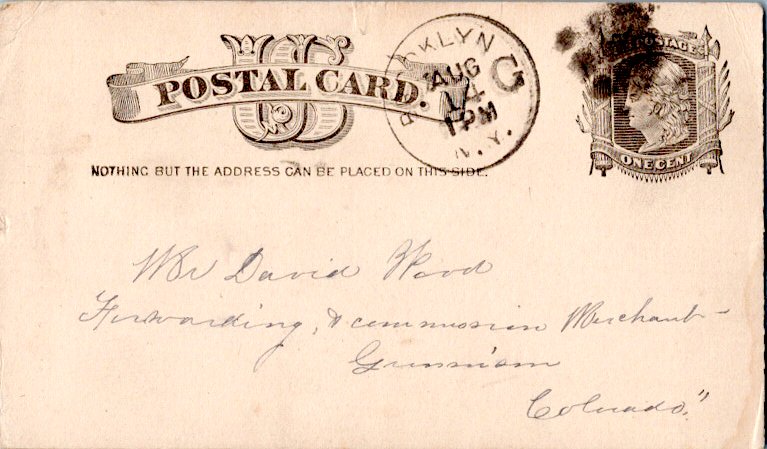 U S
POSTAL CARD.
NOTHING BUT THE ADDRESS CAN BE PLACED ON THIS SIDE.
BROOKLYN
AUG
14
1 PM
N.Y.
G
POSTAGE
ONE CENT
Mr David Wood
Forwarding, & commission Merchant-
Gunnison
Colorado"